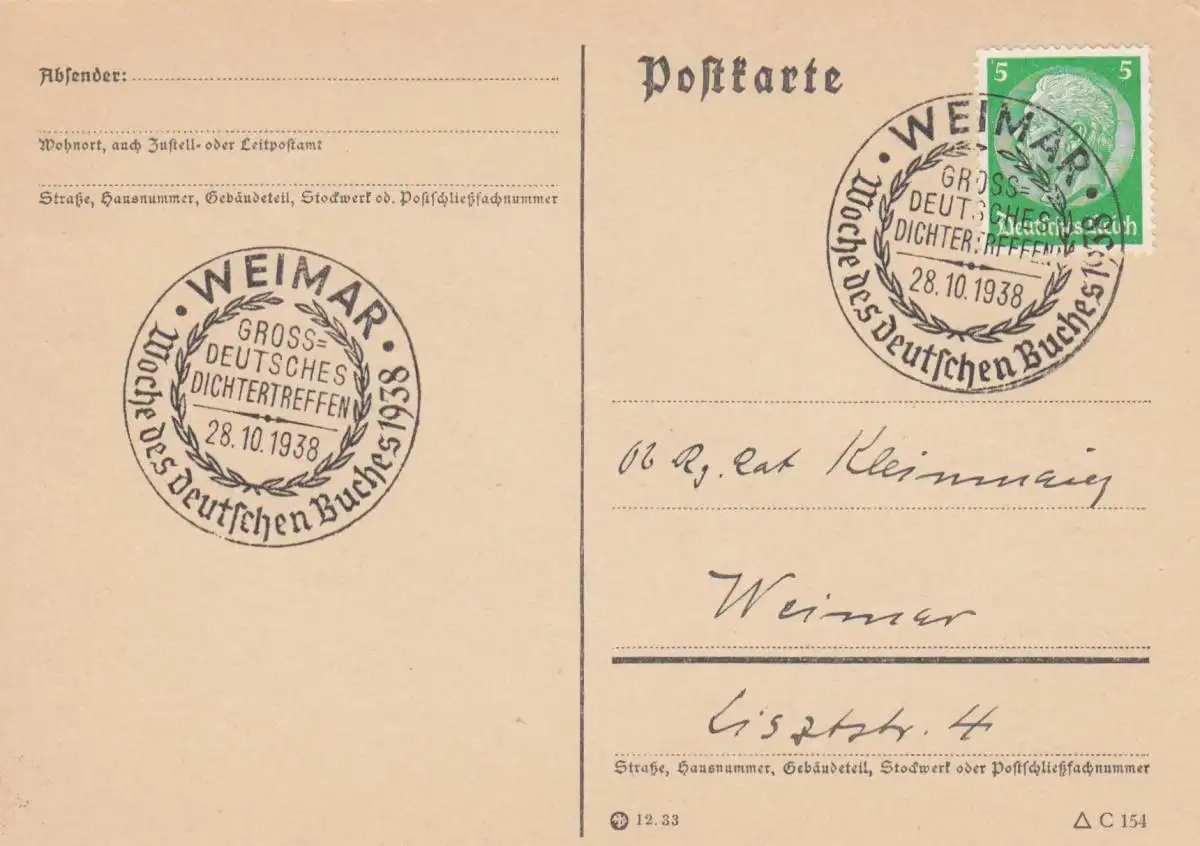 Absender:
Wohnort, auch Zustell- oder Leitpostamt
Straße, Hausnummer, Gebäudeteil, Stockwerk od. Postschließfachnummer
• WEIMAR •
GROSS=
DEUTSCHES
DICHTERTREFFEN
28.10.1938
Woche des deutschen Buches 1938
Postkarte
5 5
Deutsches Reich
• WEIMAR •
GROSS=
DEUTSCHES
DICHTERTREFFEN
28.10.1938
Woche des deutschen Buches 1938
Ob Rg. Rat Kleinmaier
Weimar
Lisztstr. 4
Straße, Hausnummer, Gebäudeteil, Stockwerk oder Postschließfachnummer
12.33
△ C 154